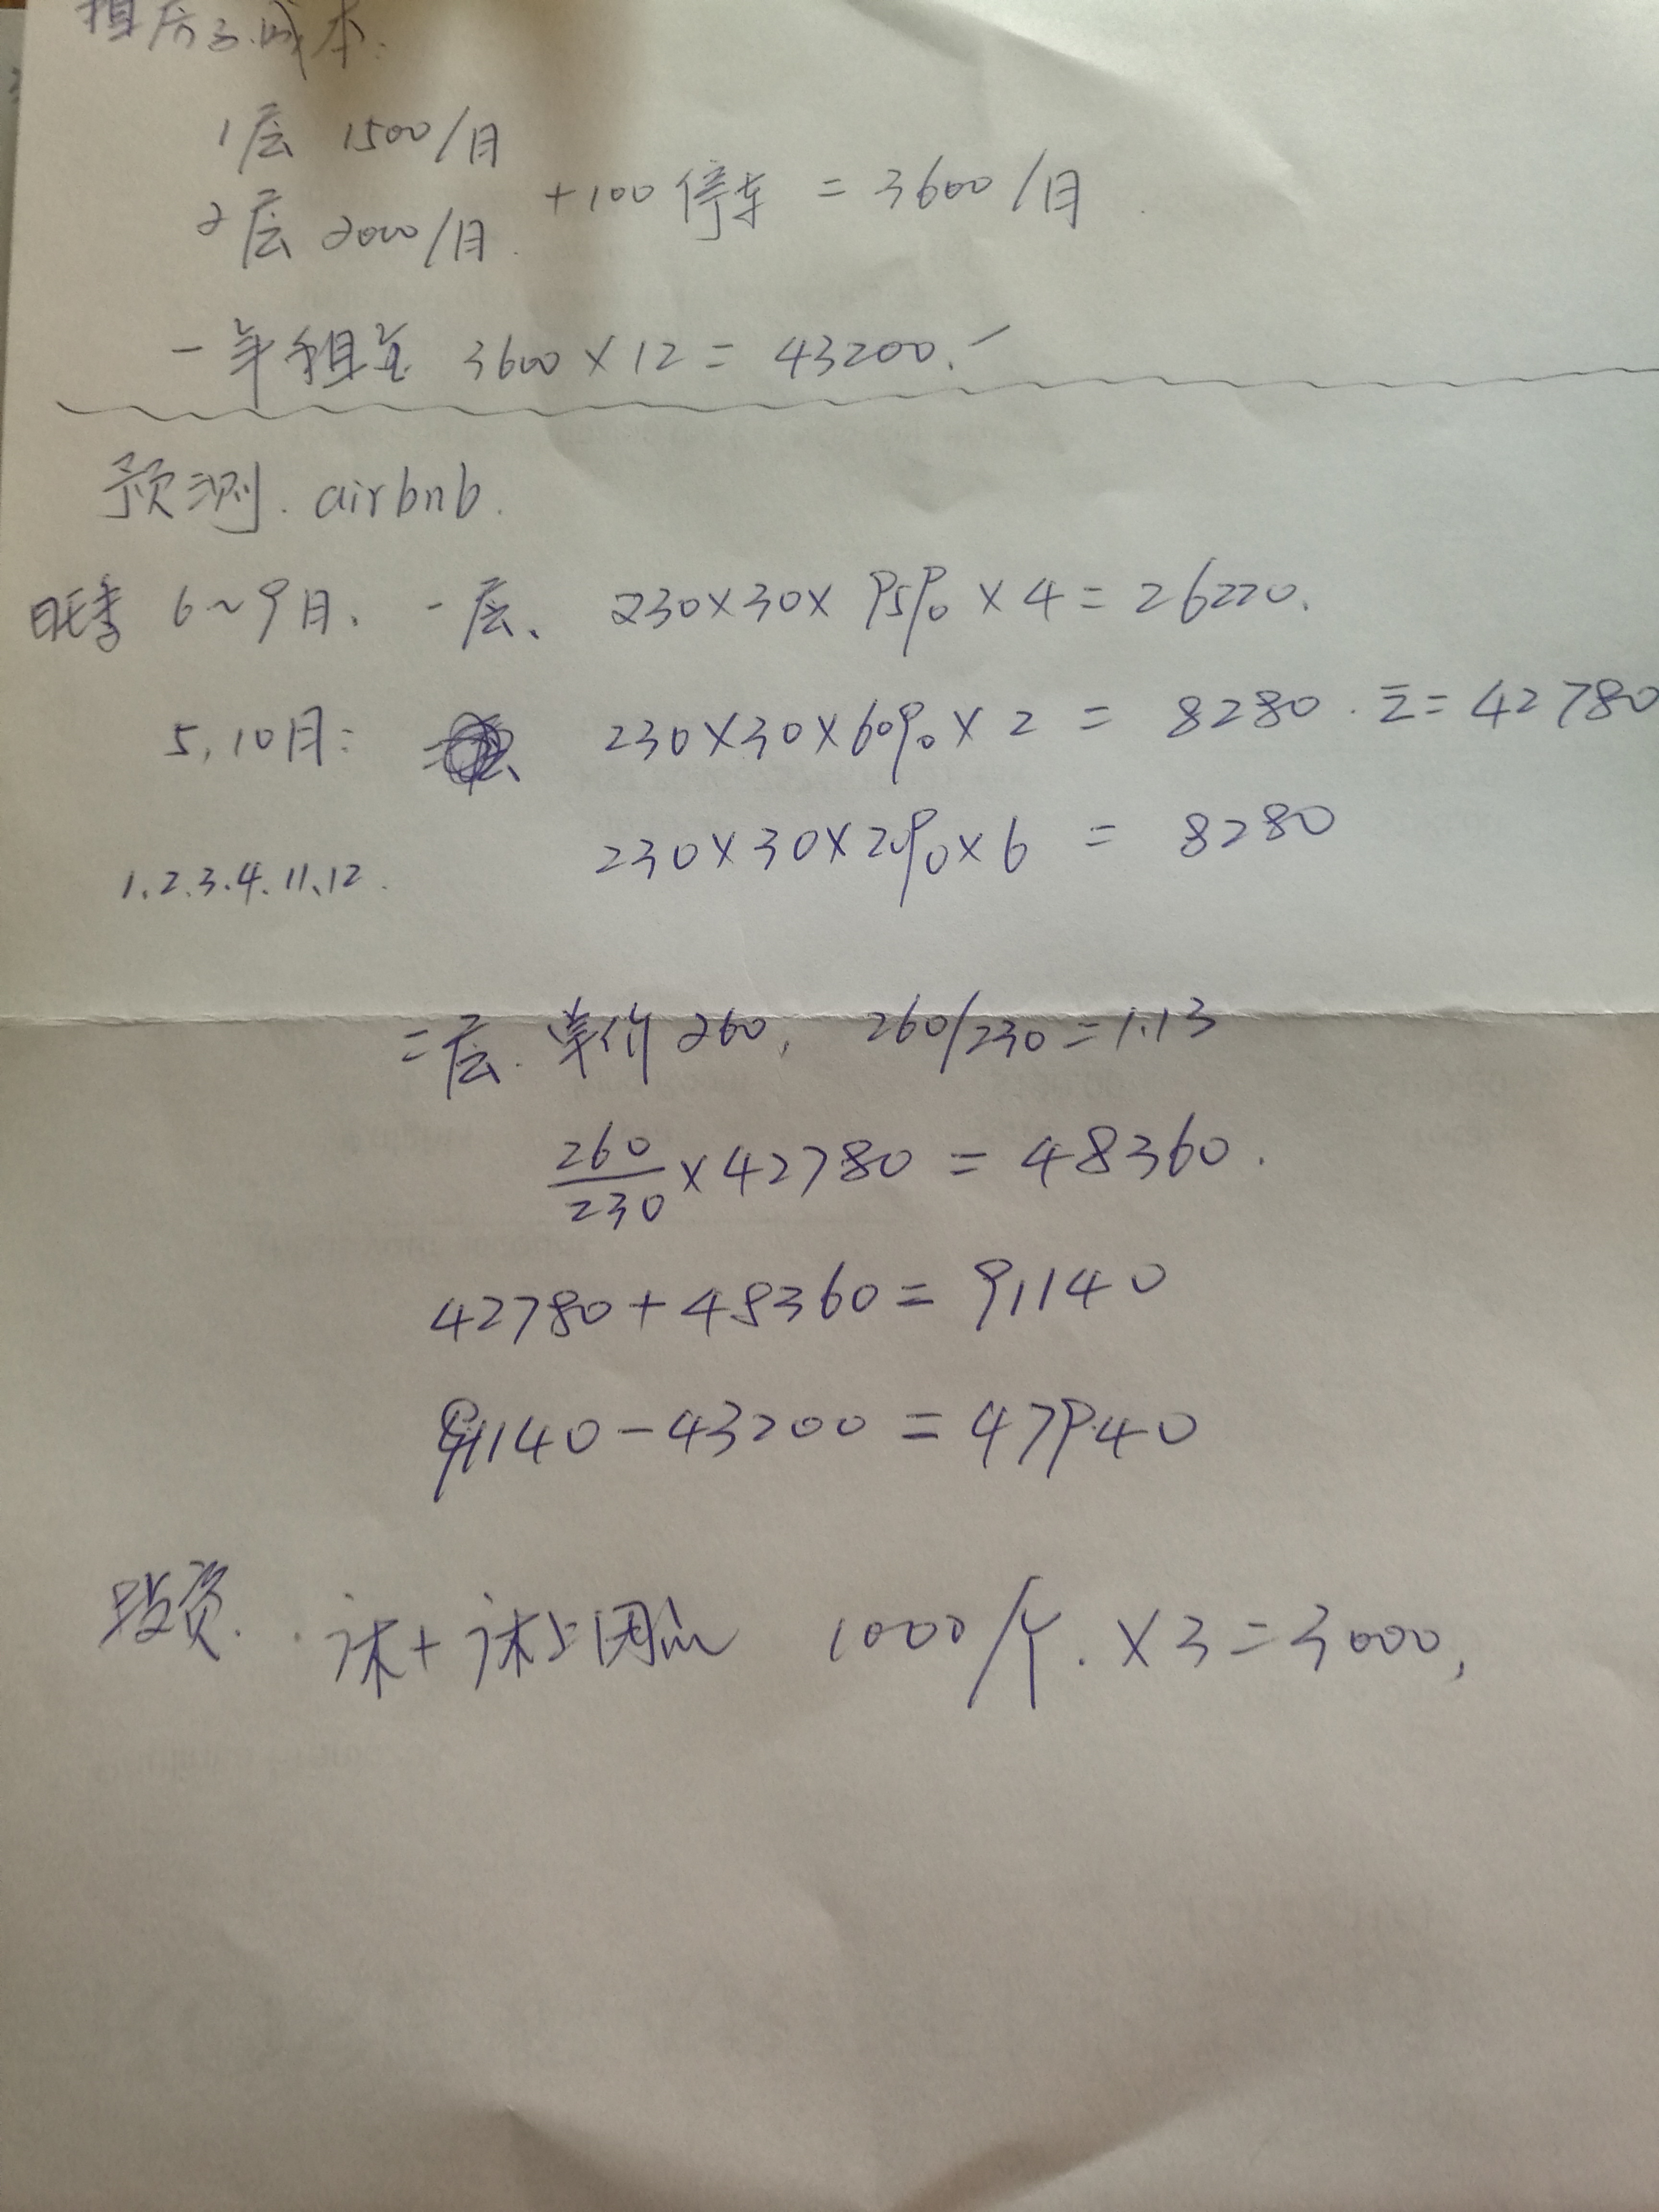 租房子成本.
1层 1500/月
2层 2000/月. +100 停车 = 3600/月
一年租金 3600×12=43200.
预测. airbnb.
旺季 6~9月、一层、 230×30×95%×4=26220.
5,10月: 230×30×60%×2 = 8280. Σ=42780
1.2.3.4.11、12. 230×30×20%×6 = 8280
二层. 单价260, 260/230=1.13
260/230×42780 = 48360.
42780+48360=91140
91140-43200=47940
投资. 床+床上用品 1000/个.×3=3000,